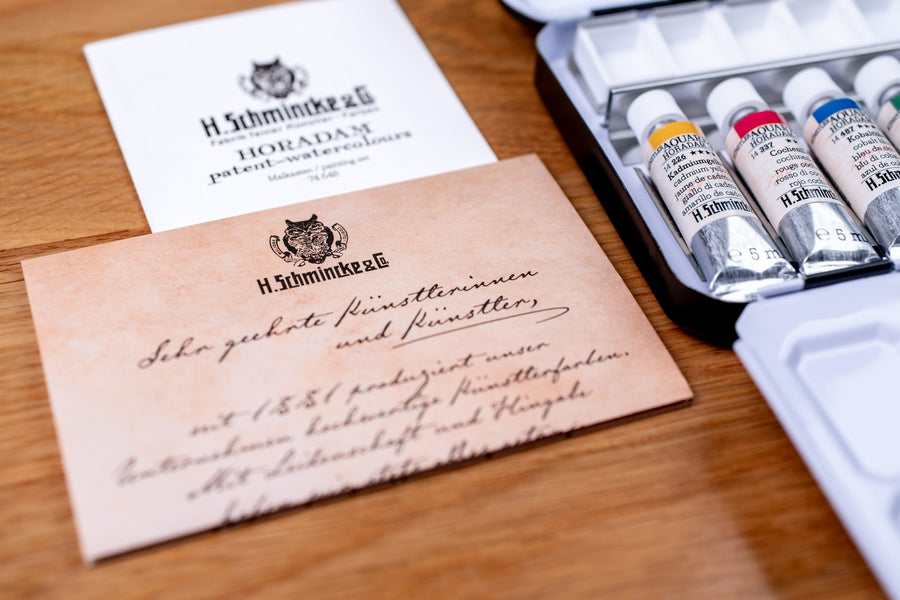 H.Schmincke & Co.
Fabrik feiner Künstler-Farben
HORADAM
patent-watercolours
Malkasten / painting set
74 648
H.Schmincke & Co.
Sehr geehrte Künstlerinnen
und Künstler,
seit 1881 produziert unser
Unternehmen hochwertige Künstlerfarben.
Mit Leidenschaft und Hingabe
haben wir stets alles
AQUAR
HORADAM
14 226
Kadmiumge
cadmium ye
jaune de cadm
giallo di cadm
amarillo de cadm
H.Schminc
℮ 5 m
AQUAR
HORADAM
14 337
Cocheng
cochin
rouge coc
rosso di coc
rojo coch
H.Schminc
℮ 5 m
AQUA
HORADA
14 487
Kobalt
cobalt b
bleu de co
blu di cobal
azul de co
H.Schm
℮